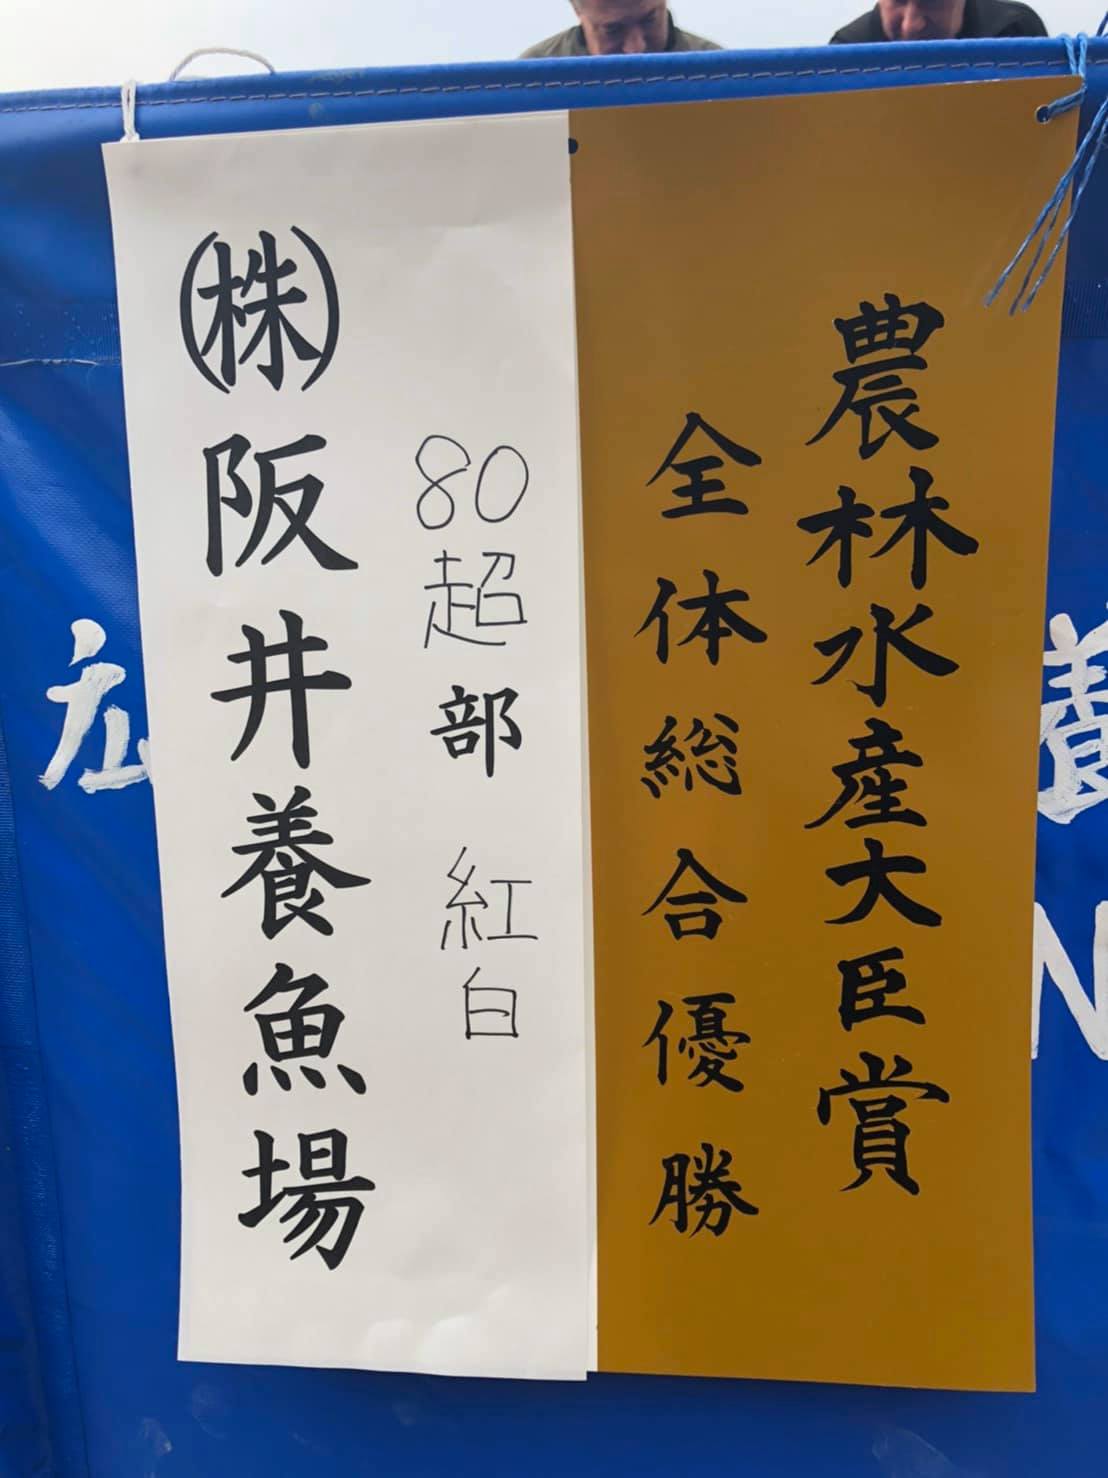 農林水産大臣賞
全体総合優勝
80超部 紅白
㈱阪井養魚場
広
養
N